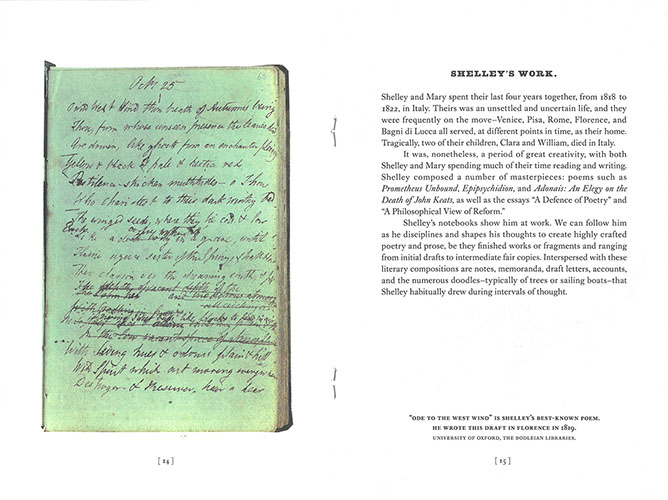 Octr 25
O wild West Wind thou breath of Autumn's being
Thou, from whose unseen presence the leaves dead
Are driven, like ghosts from an enchanter fleeing
Yellow & black & pale & hectic red
Pestilence-stricken multitudes – o Thou
Who chariotest to their dark wintry bed
The winged seeds, where they lie cold & low
Each like a corpse within its grave, until
Thine azure sister of the Spring shall blow
Her clarion oer the dreaming earth & fill
With living hues & odours plain & hill
Wild Spirit which art moving everywhere
Destroyer & Preserver, hear o hear
[ 14 ]
SHELLEY'S WORK.
Shelley and Mary spent their last four years together, from 1818 to
1822, in Italy. Theirs was an unsettled and uncertain life, and they
were frequently on the move–Venice, Pisa, Rome, Florence, and
Bagni di Lucca all served, at different points in time, as their home.
Tragically, two of their children, Clara and William, died in Italy.
It was, nonetheless, a period of great creativity, with both
Shelley and Mary spending much of their time reading and writing.
Shelley composed a number of masterpieces: poems such as
Prometheus Unbound, Epipsychidion, and Adonais: An Elegy on the
Death of John Keats, as well as the essays "A Defence of Poetry" and
"A Philosophical View of Reform."
Shelley's notebooks show him at work. We can follow him
as he disciplines and shapes his thoughts to create highly crafted
poetry and prose, be they finished works or fragments and ranging
from initial drafts to intermediate fair copies. Interspersed with these
literary compositions are notes, memoranda, draft letters, accounts,
and the numerous doodles–typically of trees or sailing boats–that
Shelley habitually drew during intervals of thought.
"ODE TO THE WEST WIND" IS SHELLEY'S BEST-KNOWN POEM.
HE WROTE THIS DRAFT IN FLORENCE IN 1819.
UNIVERSITY OF OXFORD, THE BODLEIAN LIBRARIES.
[ 15 ]